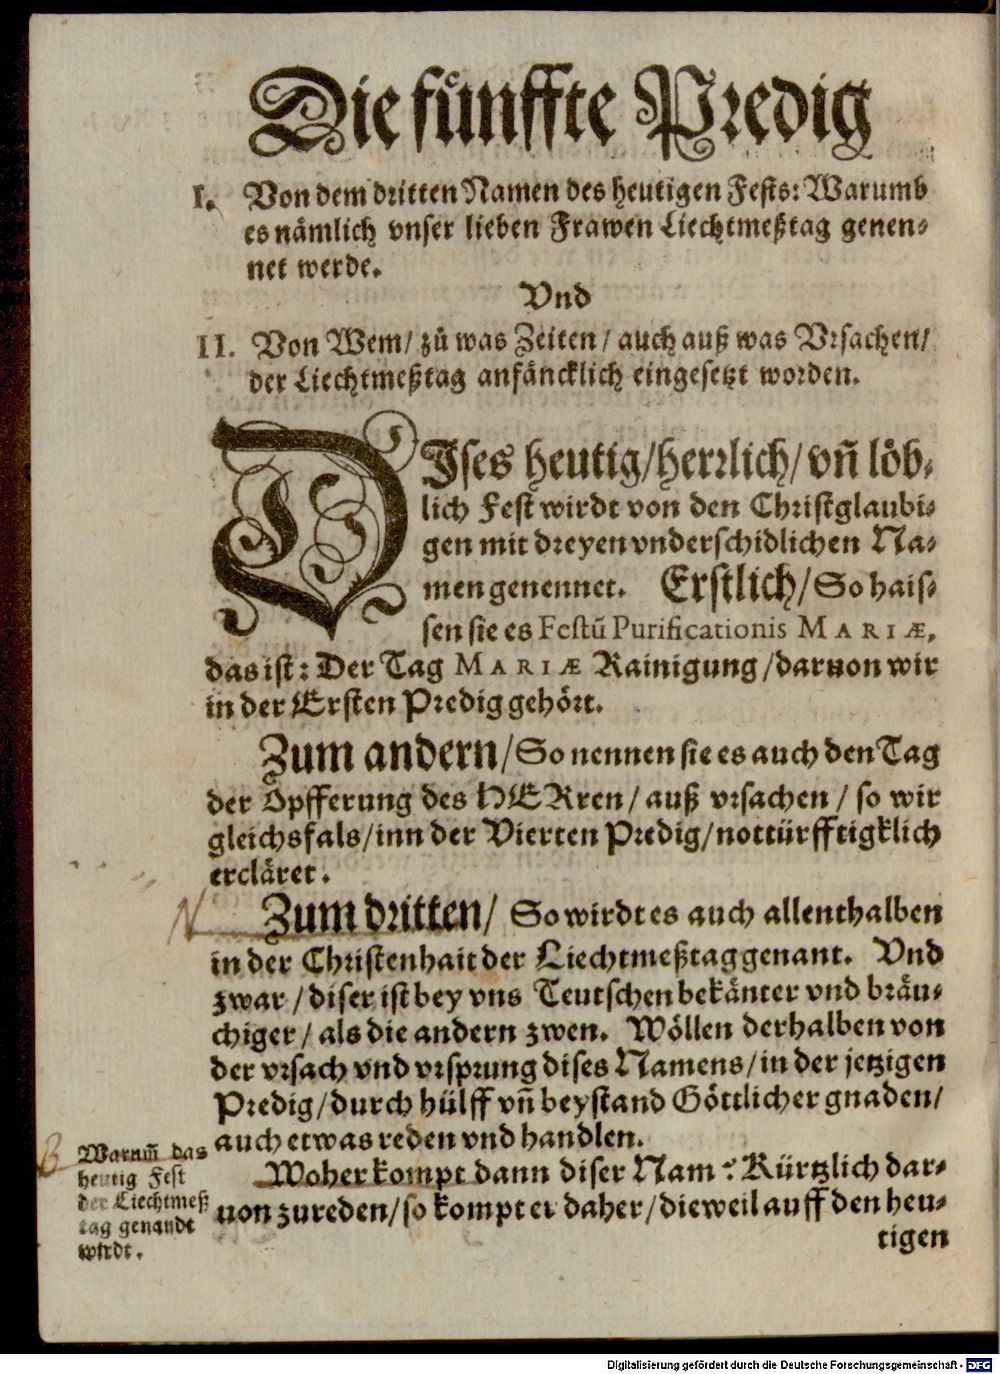 Die fuͤnffte Predig
I. Von dem dritten Namen des heutigen Fests: Warumb
es nämlich vnser lieben Frawen Liechtmeßtag genen⸗
net werde.
Vnd
II. Von Wem/ zů was Zeiten/ auch auß was Vrsachen/
der Liechtmeßtag anfäncklich eingesetzt worden.
DIses heutig/herrlich/vñ löb⸗
lich Fest wirdt von den Christglaubi⸗
gen mit dreyen vnderschidlichen Na⸗
men genennet. Erstlich/So hais⸗
sen sie es Festũ Purificationis MARIÆ,
das ist: Der Tag MARIÆ Rainigung/daruon wir
in der Ersten Predig gehört.
Zum andern/So nennen sie es auch den Tag
der Opfferung des HERren/ auß vrsachen/ so wir
gleichsfals/inn der Vierten Predig/nottürfftigklich
ercläret.
N
Zum dritten/ So wirdt es auch allenthalben
in der Christenhait der Liechtmeßtag genant. Vnd
zwar/diser ist bey vns Teutschen bekänter vnd bräu⸗
chiger/als die andern zwen. Wöllen derhalben von
der vrsach vnd vrsprung dises Namens/in der jetzigen
Predig/durch hülff vñ beystand Göttlicher gnaden/
auch etwas reden vnd handlen.
Warum̃ das
heutig Fest
der Liechtmeß
tag genandt
wirdt.
Woher kompt dann diser Nam? Kürtzlich dar⸗
uon zureden/so kompt er daher/dieweil auff den heu⸗
tigen
Digitalisierung gefördert durch die Deutsche Forschungsgemeinschaft - DFG